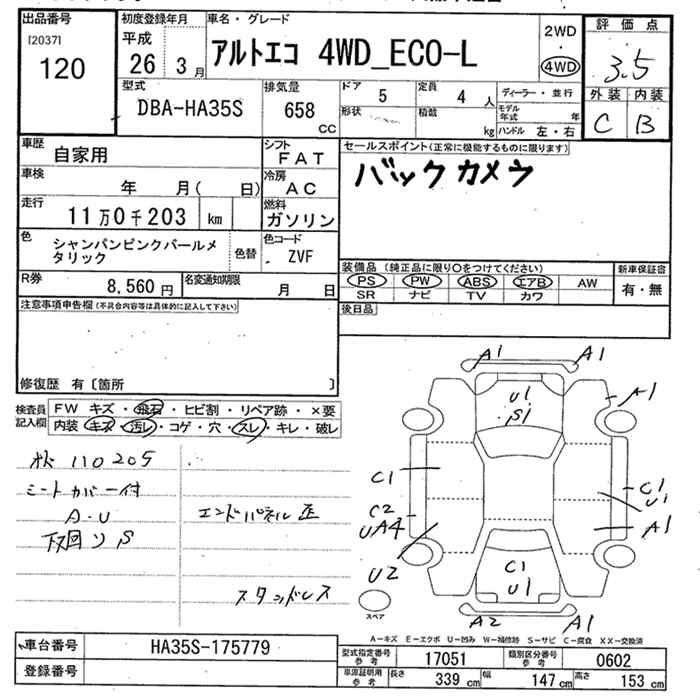 出品番号
[2037]
120
初度登録年月
平成
26 3月
車名・グレード
アルトエコ 4WD_ECO-L
2WD
・
4WD
評価点
3.5
外装 内装
C B
型式
DBA-HA35S
排気量
658
CC
ドア
5
定員
4 人
形状
積載
kg
ディーラー・並行
モデル年式 年
ハンドル 左・右
車歴
自家用
シフト
FAT
車検
年 月( 日)
冷房
AC
走行
11万0千203 km
燃料
ガソリン
色
シャンパンピンクパールメ
タリック
色替
色コード
ZVF
R券
8,560 円
名変通知期限
月 日
セールスポイント(正常に機能するものに限ります)
バックカメラ
装備品 (純正品に限り○をつけてください)
PS PW ABS エアB AW
SR ナビ TV カワ
新車保証書
有・無
後日品
注意事項申告欄(不具合内容等は具体的に記入して下さい)
修復歴 有〔箇所 〕
検査員
記入欄
FW キズ・飛石・ヒビ割・リペア跡・×要
内装・キズ・汚レ・コゲ・穴・スレ・キレ・破レ
110205
シートカバー付
A・U
下廻りS
エンドパネル歪
スタッドレス
A1 A1
U1
S1
A1
C1
C2
UA4
U2
C1
U1
A1
C1
U1
A2 A1
スペア
A－キズ E－エクボ U－凹み W－補修跡 S－サビ C－腐食 XX－交換済
車台番号
HA35S-175779
登録番号
型式指定番号
参考
17051
類別区分番号
参考
0602
車庫証明用
参考
長さ
339 cm
幅
147 cm
高さ
153 cm